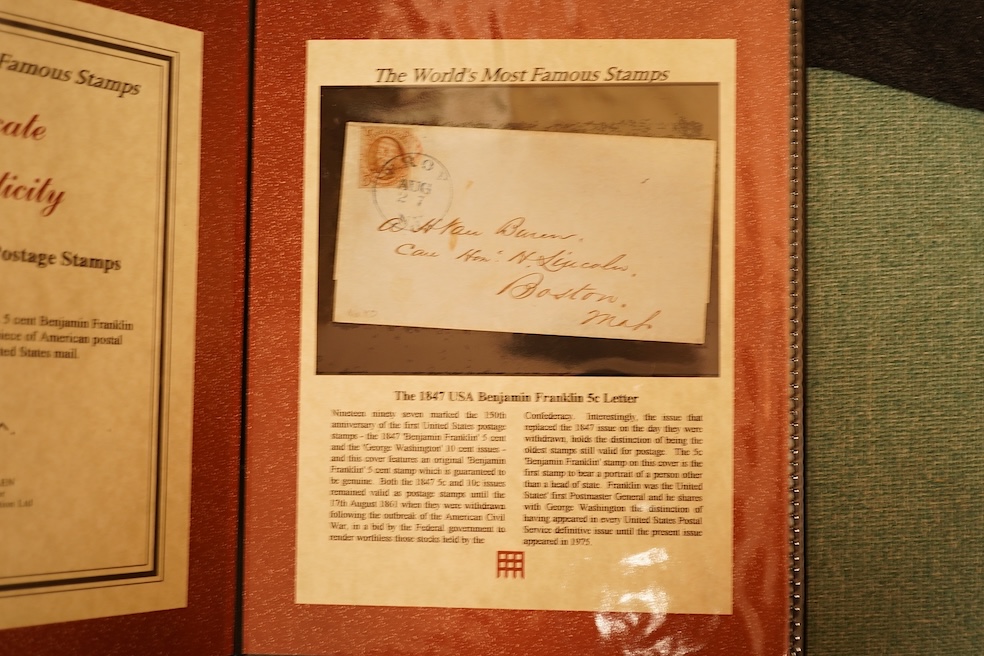 Famous Stamps
cate
ticity
Postage Stamps
5 cent Benjamin Franklin
piece of American postal
ted States mail.
The World's Most Famous Stamps
TROY
AUG
27
A H Van Buren.
Care Hon: H. Lincoln,
Boston.
Mas.
The 1847 USA Benjamin Franklin 5c Letter
Nineteen ninety seven marked the 150th
anniversary of the first United States postage
stamps - the 1847 'Benjamin Franklin' 5 cent
and the 'George Washington' 10 cent issues -
and this cover features an original 'Benjamin
Franklin' 5 cent stamp which is guaranteed to
be genuine. Both the 1847 5c and 10c issues
remained valid as postage stamps until the
17th August 1861 when they were withdrawn
following the outbreak of the American Civil
War, in a bid by the Federal government to
render worthless those stocks held by the
Confederacy. Interestingly, the issue that
replaced the 1847 issue on the day they were
withdrawn, holds the distinction of being the
oldest stamps still valid for postage. The 5c
'Benjamin Franklin' stamp on this cover is the
first stamp to bear a portrait of a person other
than a head of state. Franklin was the United
States' first Postmaster General and he shares
with George Washington the distinction of
having appeared in every United States Postal
Service definitive issue until the present issue
appeared in 1975.